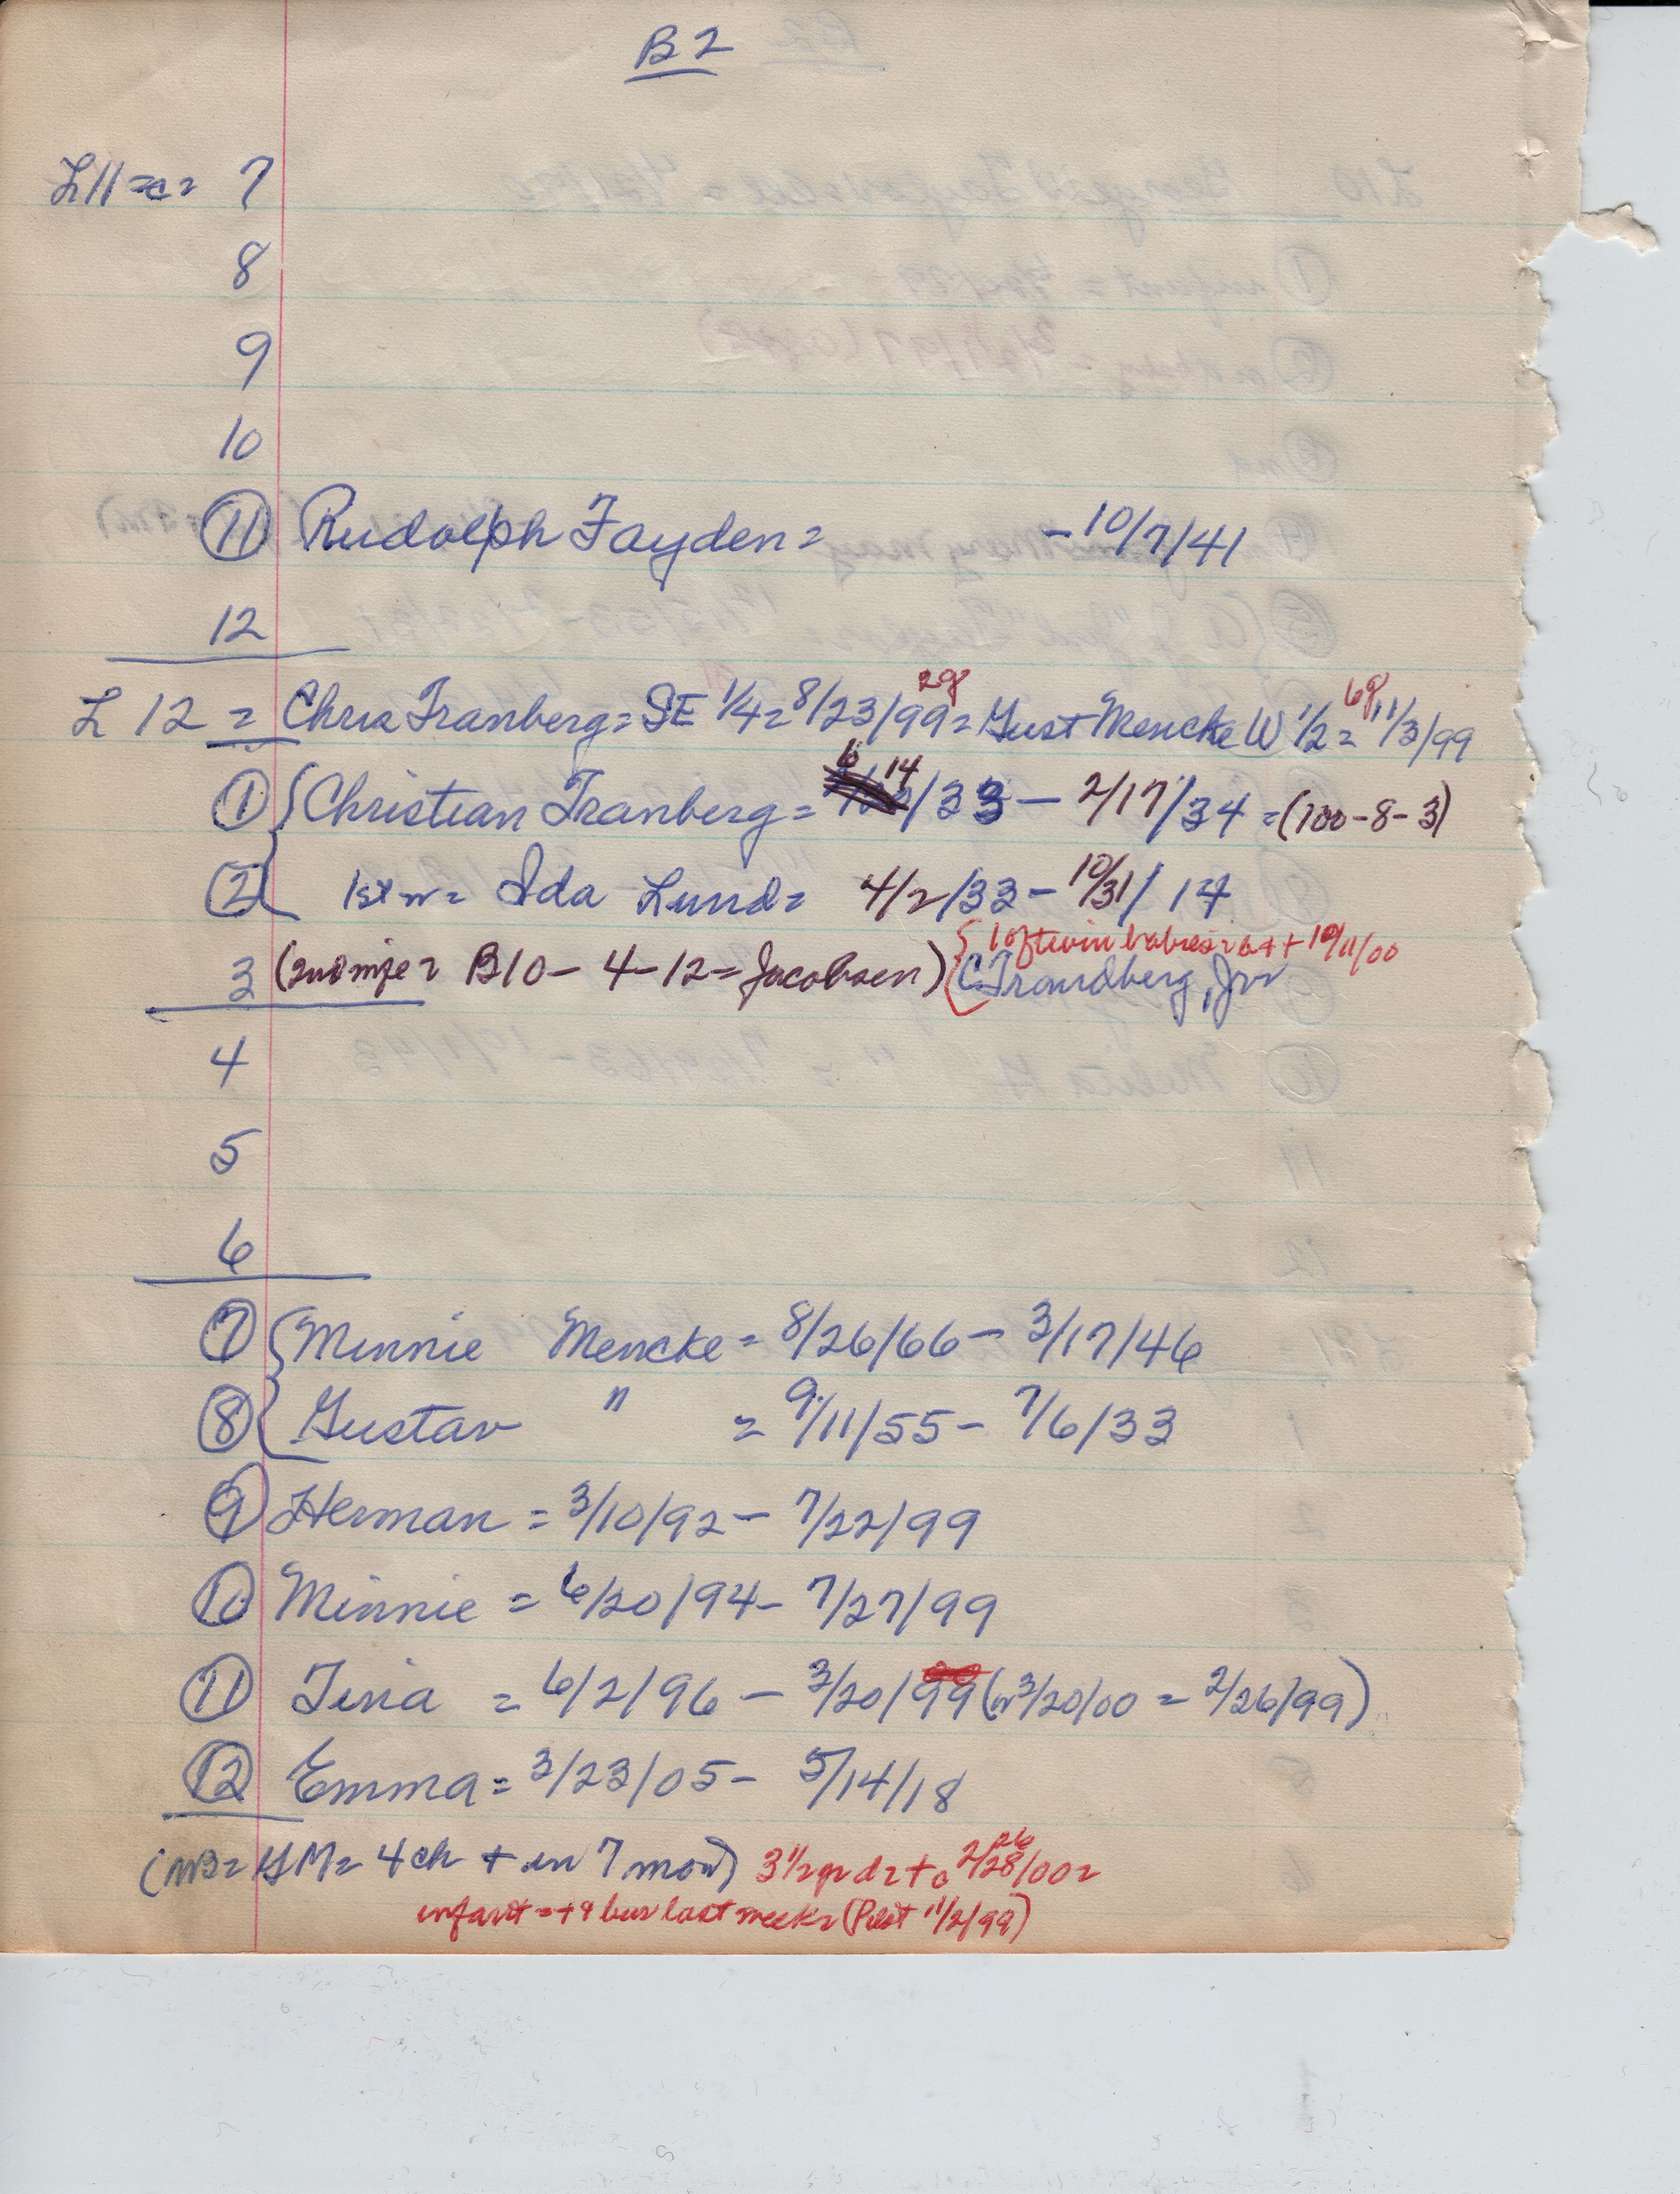 B2
L11=c= 7
8
9
10
11 Rudolph Fayden= -10/7/41
12
2g 6g
L 12 = Chris Tranberg= SE 1/4= 8/23/99= Gust Mencke W 1/2= 11/3/99
1 { Christian Tranberg= 6/14/33 - 2/17/34 =(100-8-3)
2 { 1st w= Ida Lund= 4/2/33 - 10/31/14
{ 1 of twin babies= + 10/11/00
3 (2nd wife= B10-4-12= Jacobsen) { C Trandberg, Jr
4
5
6
7 { Minnie Mencke= 8/26/66 - 3/17/46
8 { Gustav " = 9/11/55 - 7/6/33
9 Herman = 3/10/92 - 7/22/99
10 Minnie = 6/20/94 - 7/27/99
11 Tina = 6/2/96 - 3/20/99 (or 3/20/00 = 2/26/99)
12 Emma= 3/23/05 - 5/14/18
(NB= GM= 4 ch + in 7 mos) 3 1/2 yr d= + 2/28/00= 26
infant = + & bur last week= (Pilot 11/2/99)